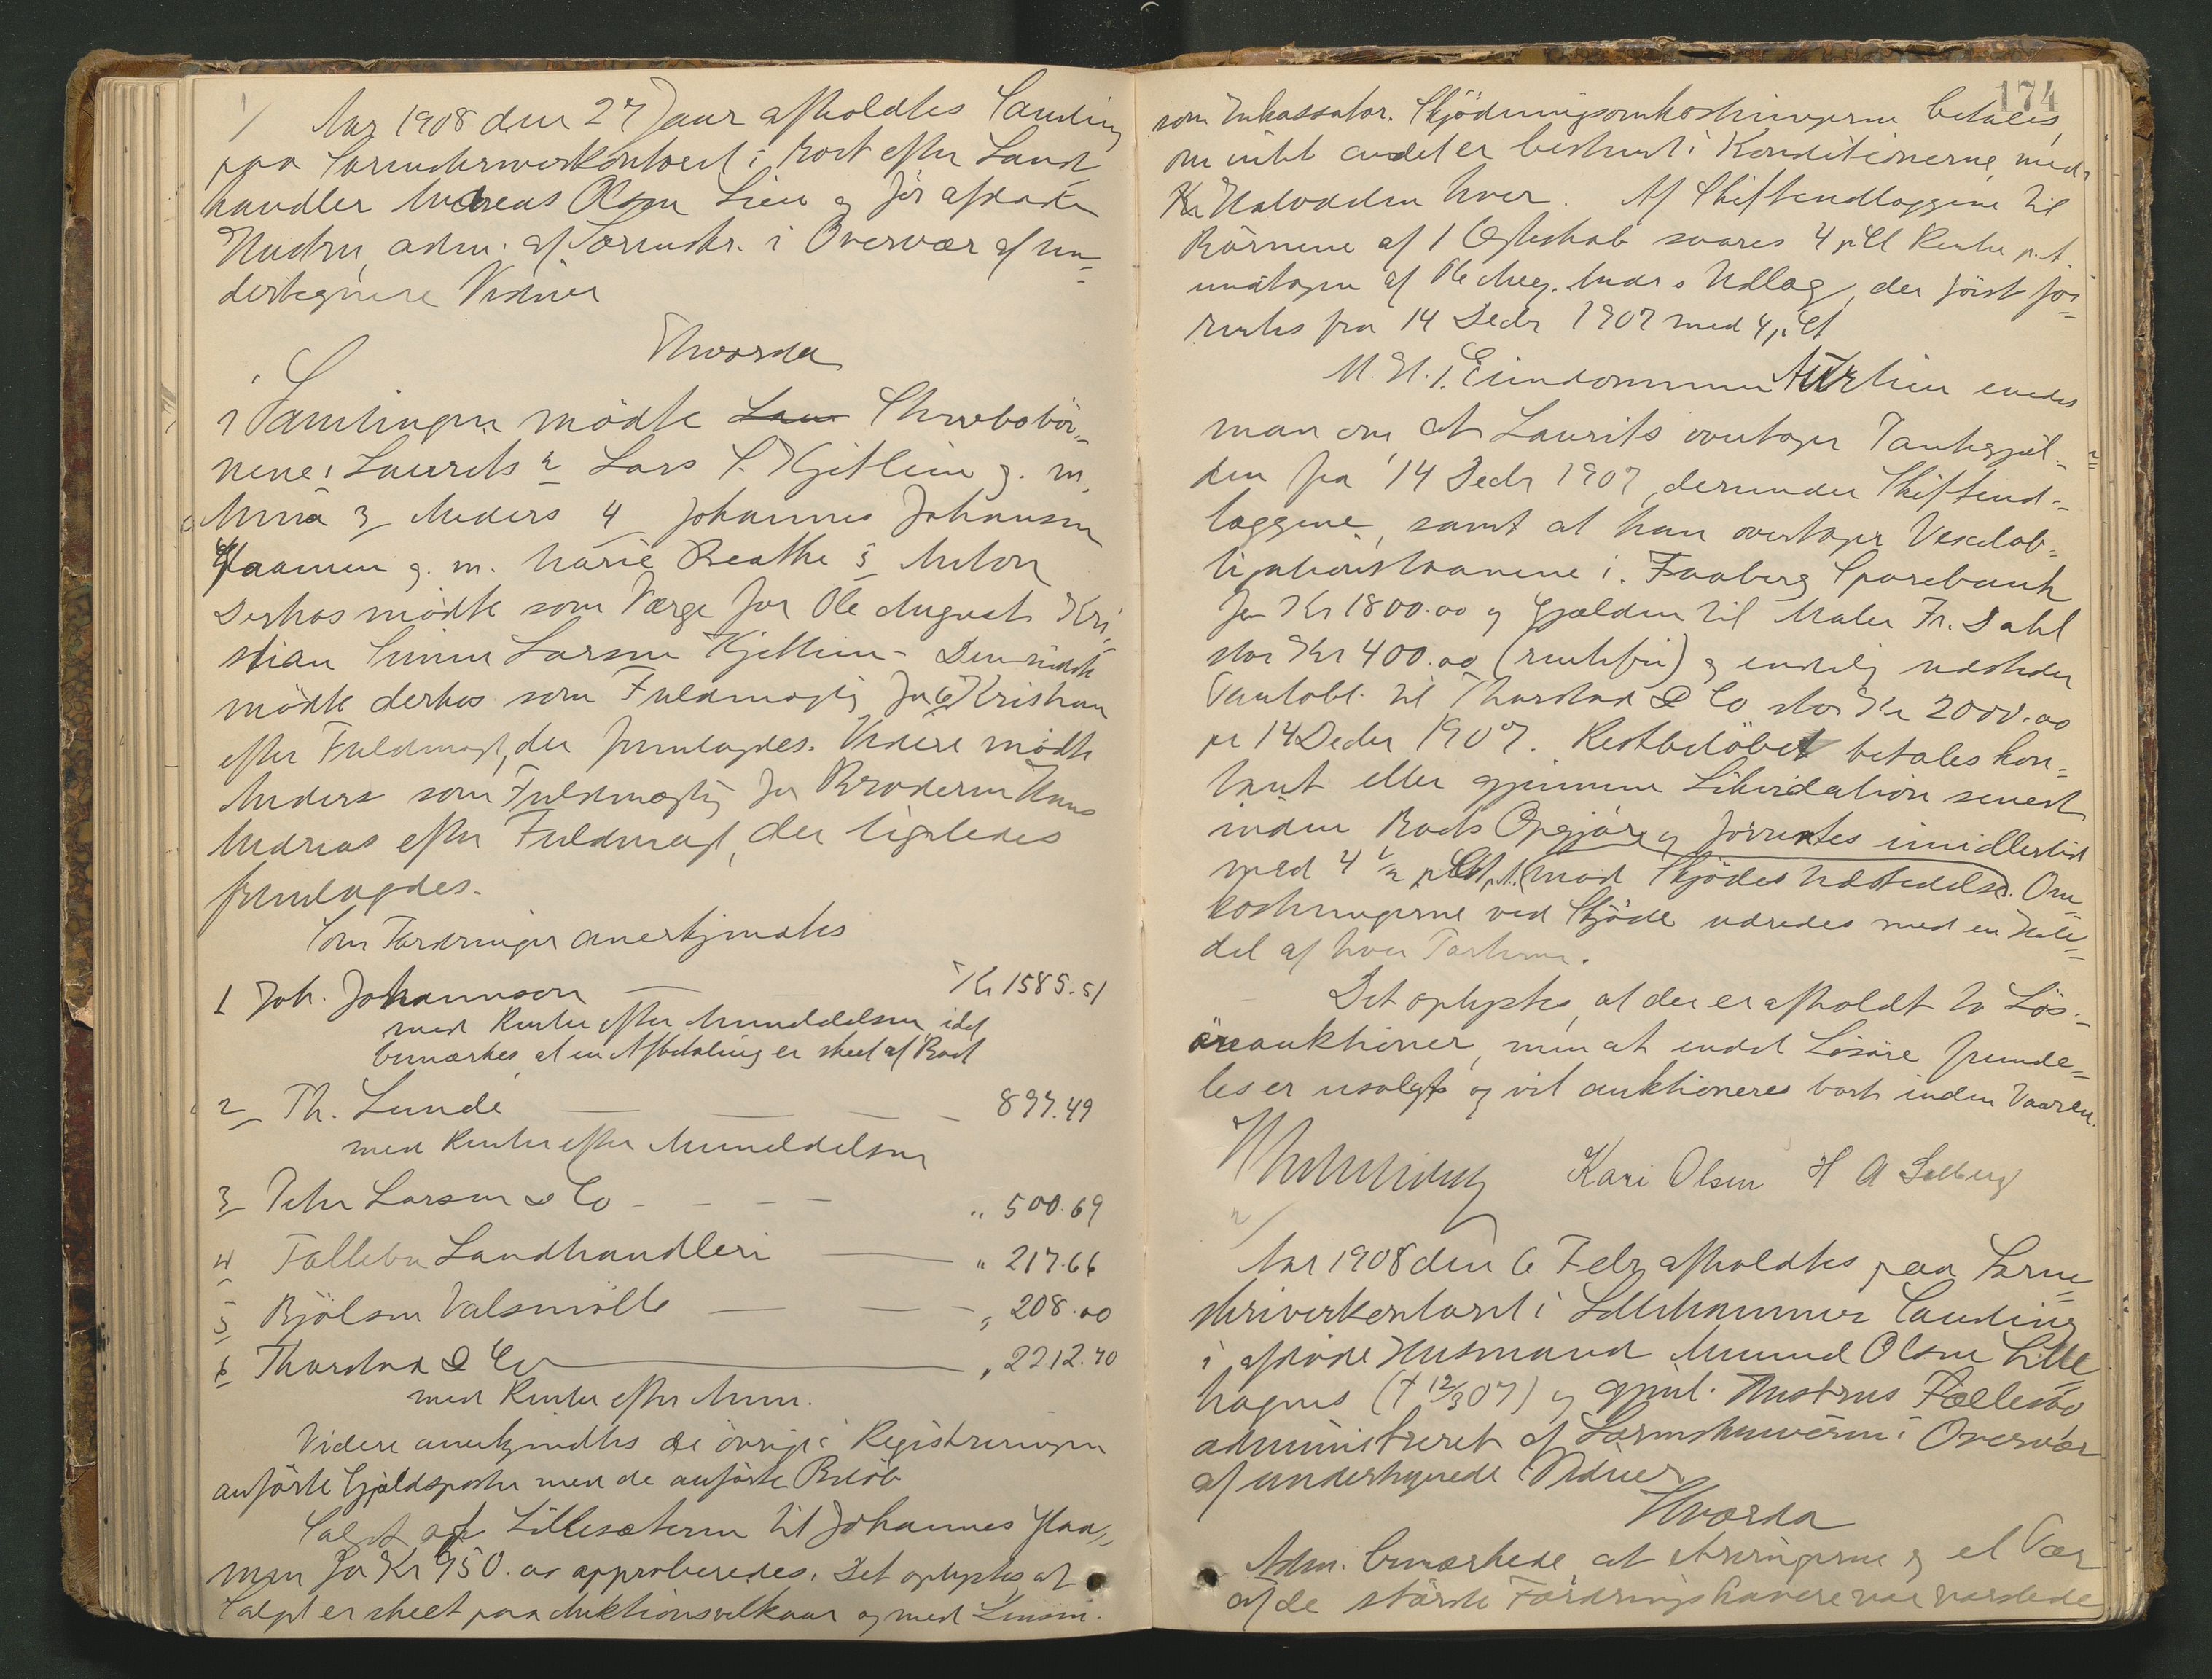 1/
Aar 1908 den 27 Januar afholdtes Samling
paa Sorenskriverkontoret i Boet efter Land-
handler Andreas Olsen Lien og før afdøde
Hustru, adm. af Sorenskr. i Overvær af un-
dertegnede Vidner
Hvorda
i Samlingen mødte Stervbobör-
nene: Laurits 2 Lars S. Kjetlien g. m.
Anna 3 Anders 4 Johannes Johansen
Flaamen g. m. Marie Beathe 5 Anton
Derhos mødte som Værge for Ole August Kri-
stian Simen Larsen Kjetlien - Den sidste
mødte derhos som Fuldmægtig for 6 Kristian
efter Fuldmagt, der fremlagdes. Videre mødte
Anders som Fuldmægtig for Broderen Hans
Andreas efter Fuldmagt, der ligeledes
fremlagdes.
Som Fordringer anerkjendtes
1 Joh. Johannson — Kr 1585.51
med Renter efter Anmeldelsen, idet
bemærkes, at en Afbetaling er skeet af Boet
2 Th. Lunde — — — 897.49
med Renter efter Anmeldelsen
3 Peter Larsen & Co - - - - " 500.69
4 Follebu Landhandleri — " 217.66
5 Bjölsen Valsemölle — — " 208.00
6 Thorstad & Co — " 2212.70
med Renter efter Anm.
Videre anerkjendtes de övrige i Registreringen
anförte Gjældsposter med de anförte Belöb
Salget af Lillesæteren til Johannes Flaa-
men for Kr 950.00 approberedes. Det oplystes, at
Salget er skeet paa Auktionsvilkaar og med Lensm.
174
som Inkassator. Skjödningsomkostningerne betales,
om intet andet er bestemt i Konditionerne, med
Halvdelen hver. Af Skifteudlæggene til
Börnene af 1 Ægteskab svares 4 pCt Rente p. A.
undtagen af Ole Aug. Andr.s Udlæg, der först for-
rentes fra 14 Decbr 1907 med 4 pCt
M. H. t. Eiendommen Lien enedes
man om, at Laurits overtager Pantegjæl-
den fra 14 Decbr 1907, derunder Skifteud-
læggene, samt at han overtager Vexelob-
ligationslaanene i Faaberg Sparebank
for Kr 1800.00 og Gjælden til Maler Fr. Dahl
stor Kr 400.00 (rentefri) og endelig udsteder
Pantobl. til Thorstad & Co stor Kr 2000.00
pr 14 Decbr 1907. Restbelöbet betales kon-
tant eller gjennem Likvidation senest
inden Boets Opgjör og forrentes imidlertid
med 4 ½ pCt p. A. mod Skjödes Udstedelse. Om-
kostningerne ved Skjöde udredes med en Halv-
del af hver Parterne.
Det oplystes, at der er afholdt to Lös-
öreauktioner, men at endel Lösöre fremde-
les er usolgt og vil auktioneres bort inden Vaaren.
Kari Olsen H A Solberg
2/
Aar 1908 den 6 Febr afholdtes paa Soren-
skriverkontoret i Lillehammer Samling
i afdöde Husmand Amund Olsen Lille
hagens († 12/3 07) og gjenl. Hustrus Fællesbo
administreret af Sorenskriveren i Overvær
af undertegnede Vidner
Hvorda
Adm. bemærkede, at Arvingerne og et Par
af de störste Fordringshavere var varslede